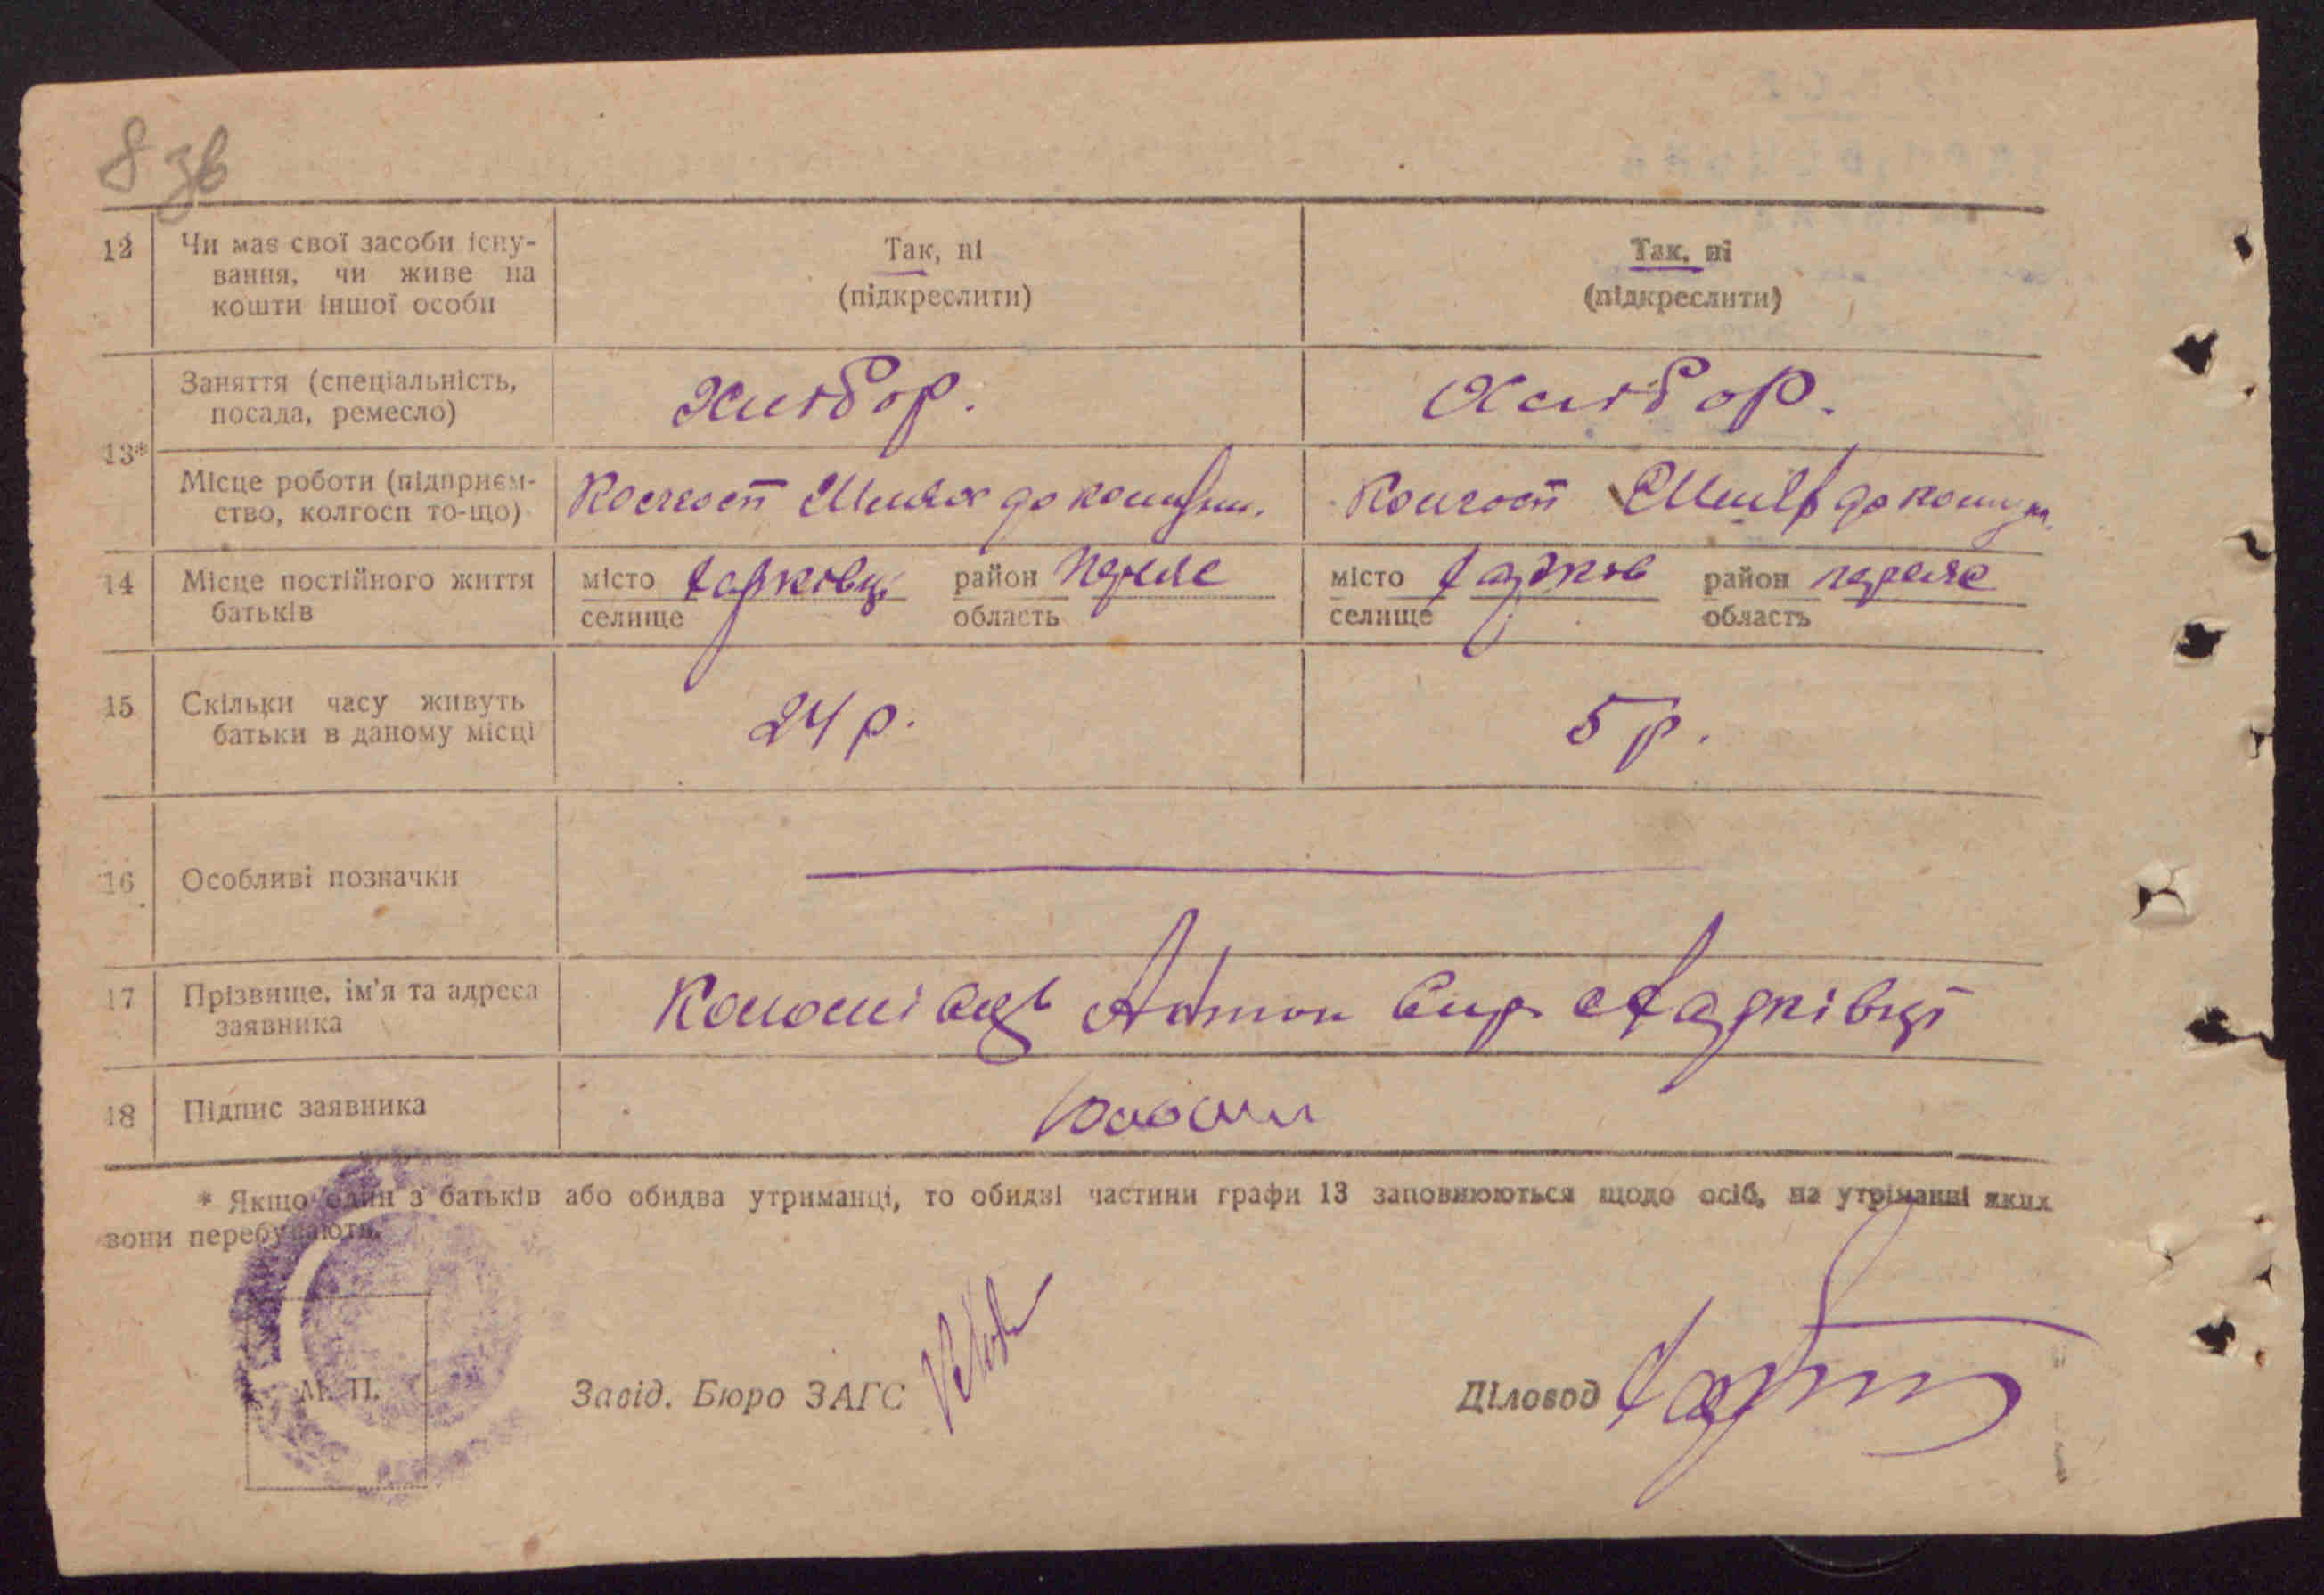 8 зв
12 Чи має свої засоби існу-
вання, чи живе на
кошти іншої особи
Так, ні
(підкреслити)
Так, ні
(підкреслити)
13*
Заняття (спеціальність,
посада, ремесло)
Хлібор.
Хлібор.
Місце роботи (підприєм-
ство, колгосп то-що)
Колгосп Шлях до комуни.
Колгосп Шлях до комун.
14 Місце постійного життя
батьків
місто район
селище область
місто район
селище область
15 Скільки часу живуть
батьки в даному місці
24 р.
5 р.
16 Особливі позначки
17 Прізвище, ім'я та адреса
заявника
Коломієць Антон
18 Підпис заявника
* Якщо один з батьків або обидва утриманці, то обидві частини графи 13 заповнюються щодо осіб, на утріманні яких
вони перебувають.
М. П.
Завід. Бюро ЗАГС
Діловод